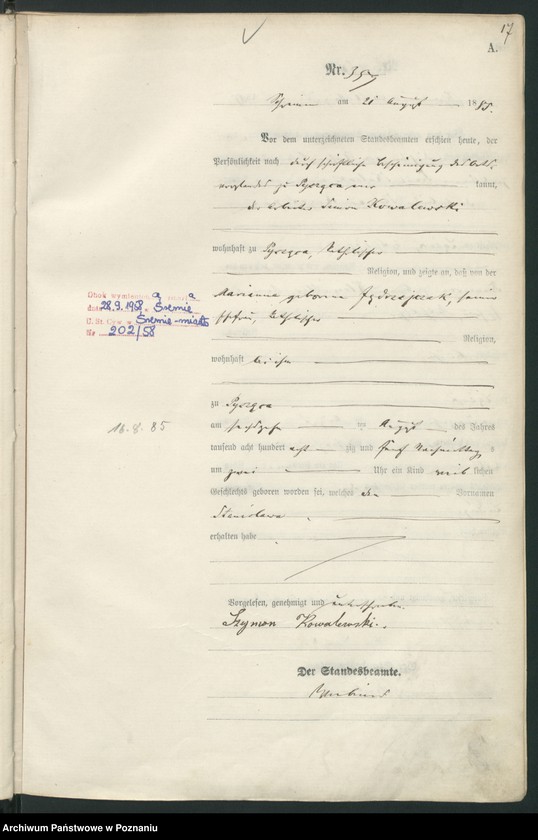 17
A.
Nr.
am 21 August 1885.
Vor dem unterzeichneten Standesbeamten erschien heute, der
Persönlichkeit nach durch schriftliche Bescheinigung des Orts-
kannt,
der Arbeiter Simon Kowalewski
wohnhaft zu Pysząca, katholischer
Religion, und zeigte an, daß von der
Marianna geborene Jędrzejczak, seiner
Ehefrau, katholischer
Religion,
wohnhaft bei ihm
zu Pysząca
am sechzehnten August des Jahres
tausend acht hundert acht zig und fünf Nachmittags
um zwei Uhr ein Kind weib lichen
Geschlechts geboren worden sei, welches den Vornamen
Stanislawa
erhalten habe
Vorgelesen, genehmigt und unterschrieben.
Szymon Kowalewski.
Der Standesbeamte.
28.9.1958 Śremie
U. St. Cyw. w Śremie-miasto
Nr 202/58
16.8.85
Archiwum Państwowe w Poznaniu